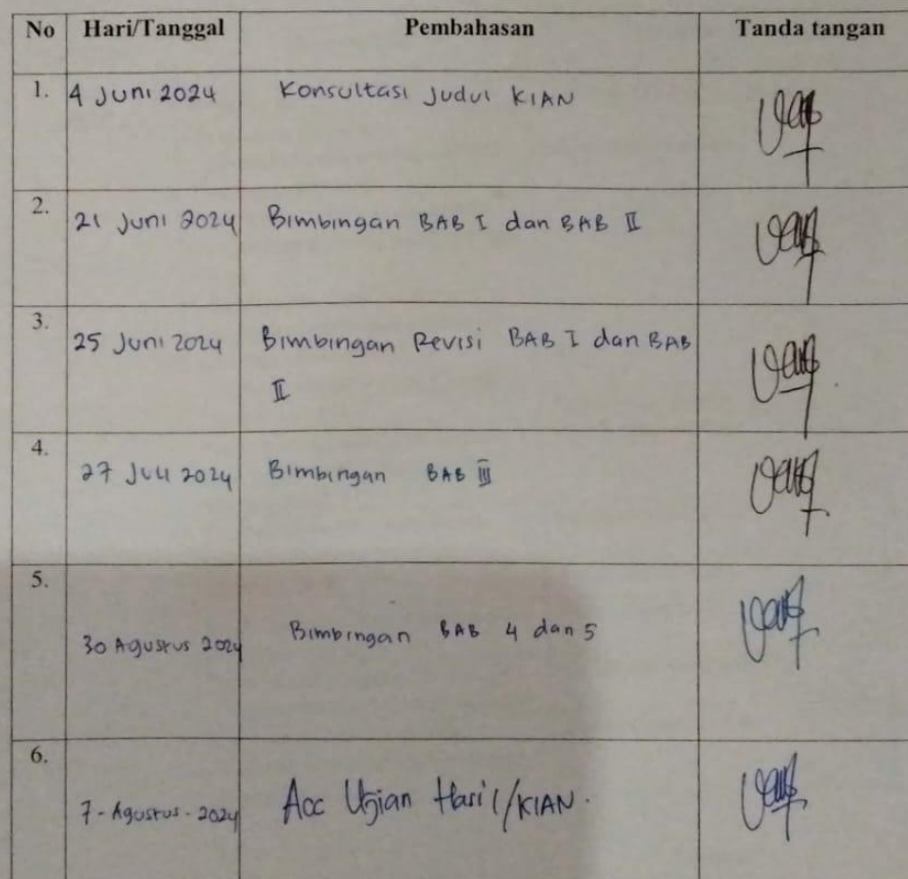 No Hari/Tanggal Pembahasan Tanda tangan
1. 4 Juni 2024 Konsultasi Judul KIAN
2. 21 Juni 2024 Bimbingan BAB I dan BAB II
3. 25 Juni 2024 Bimbingan Revisi BAB I dan BAB
II
4. 27 Juli 2024 Bimbingan BAB III
5. 30 Agustus 2024 Bimbingan BAB 4 dan 5
6. 7-Agustus-2024 Acc Ujian Hasil/KIAN.